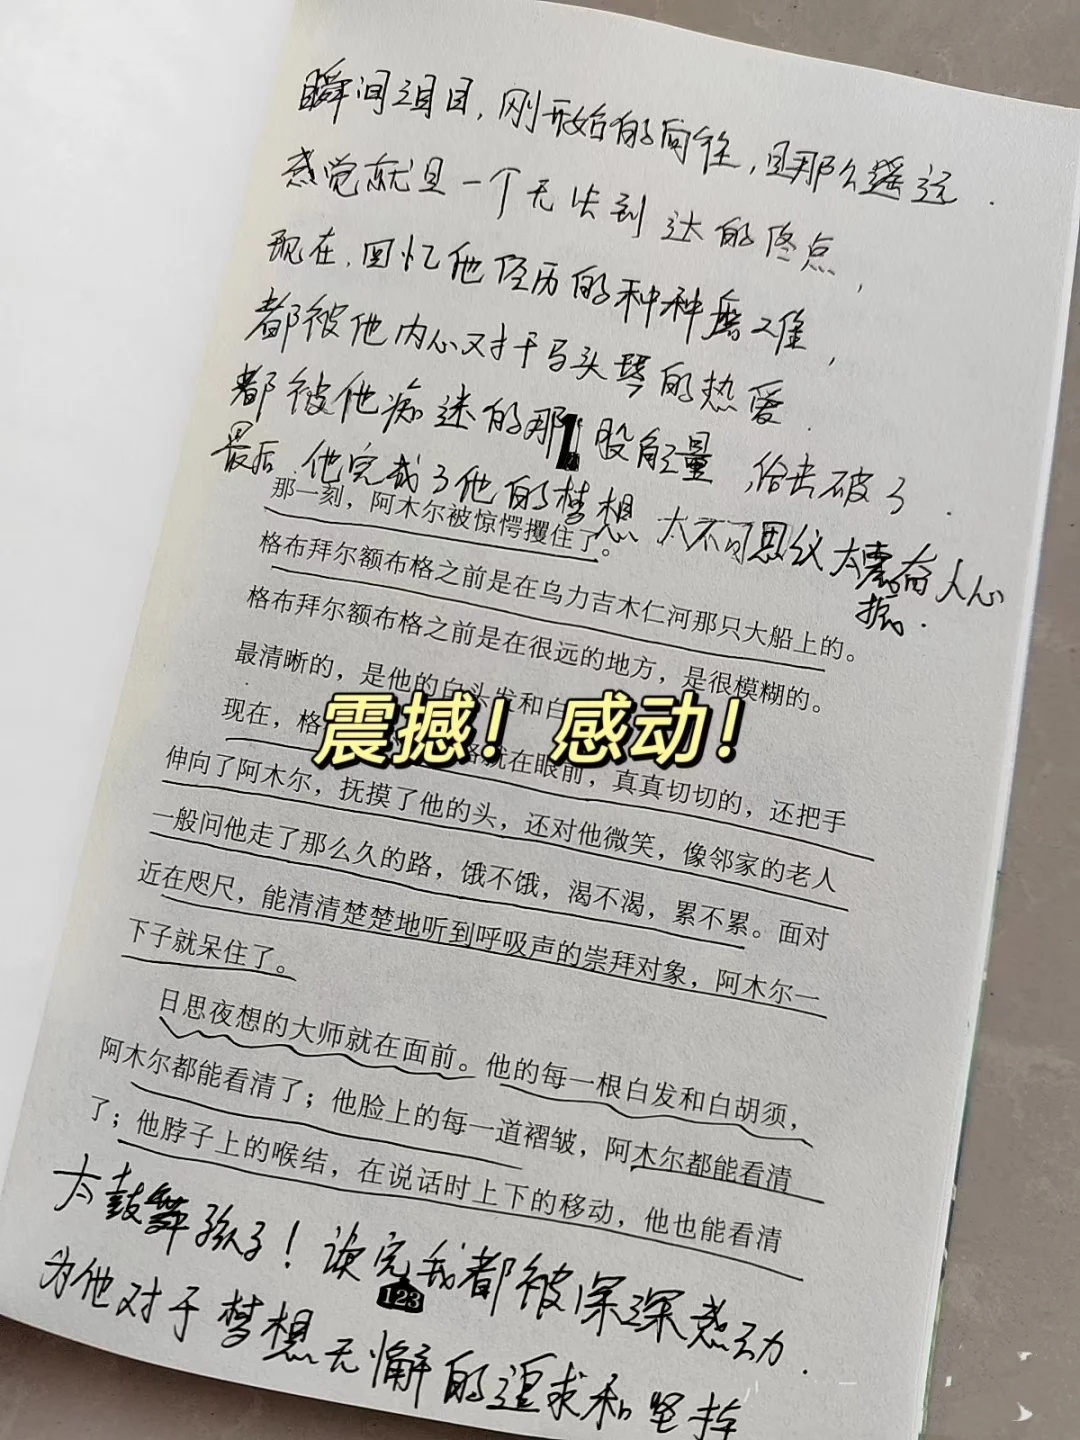 瞬间泪目，刚开始的向往，是那么遥远．
感觉就是一个无法到达的终点，
现在，回忆他经历的种种磨难，
都被他内心对于马头琴的热爱．
都被他痴迷的那股能量，给击破了．
最后，他完成了他的梦想 太不可思议 太震奋人心
振．
那一刻，阿木尔被惊愕攫住了。
格布拜尔额布格之前是在乌力吉木仁河那只大船上的。
格布拜尔额布格之前是在很远的地方，是很模糊的。
最清晰的，是他的白头发和白
震撼！感动！
现在，格 就在眼前，真真切切的，还把手
伸向了阿木尔，抚摸了他的头，还对他微笑，像邻家的老人
一般问他走了那么久的路，饿不饿，渴不渴，累不累。面对
近在咫尺，能清清楚楚地听到呼吸声的崇拜对象，阿木尔一
下子就呆住了。
日思夜想的大师就在面前。他的每一根白发和白胡须，
阿木尔都能看清了；他脸上的每一道褶皱，阿木尔都能看清
了；他脖子上的喉结，在说话时上下的移动，他也能看清
太鼓舞孩子！读完我都被深深感动．
123
为他对于梦想无懈的追求和坚持